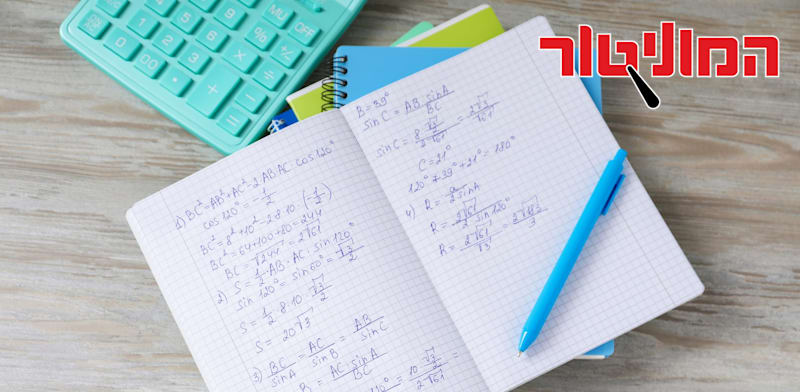 המוניטור
OFF
MU
6
9
5
8
4
7
0
00
1) BC² = AB² + AC² - 2·AB·AC·cos120°
cos120° = -1/2
BC² = 8² + 10² - 2·8·10·(-1/2)
BC² = 64 + 100 + 80 = 244
BC = √244 = 2√61
2) S = 1/2·AB·AC·sin120°
sin120° = sin60° = √3/2
S = 1/2·8·10·√3/2
S = 20√3
3) BC/sinA = AC/sinB = AB/sinC
AC sinA/BC
10 √3/2 / 2√61 =
B = 39°
sinC = AB·sinA/BC
sinC = 8·√3/2 / 2√61 = 2√3/√61
C = 21°
120° + 39° + 21° = 180°
4) R = a/2sinA
R = 2√61/2sin120°
R = 2√61/√3 = 2√183/3